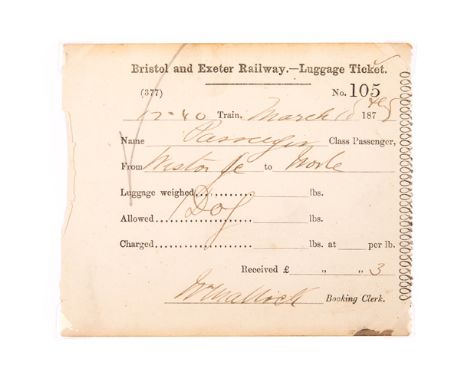 Bristol and Exeter Railway.—Luggage Ticket.
(377) No. 105
12.40 Train, March 187
Name Passenger Class Passenger,
From Weston Jc to Worle
Luggage weighed lbs.
1 Dog
Allowed lbs.
Charged lbs. at per lb.
Received £ " " 3
Booking Clerk.